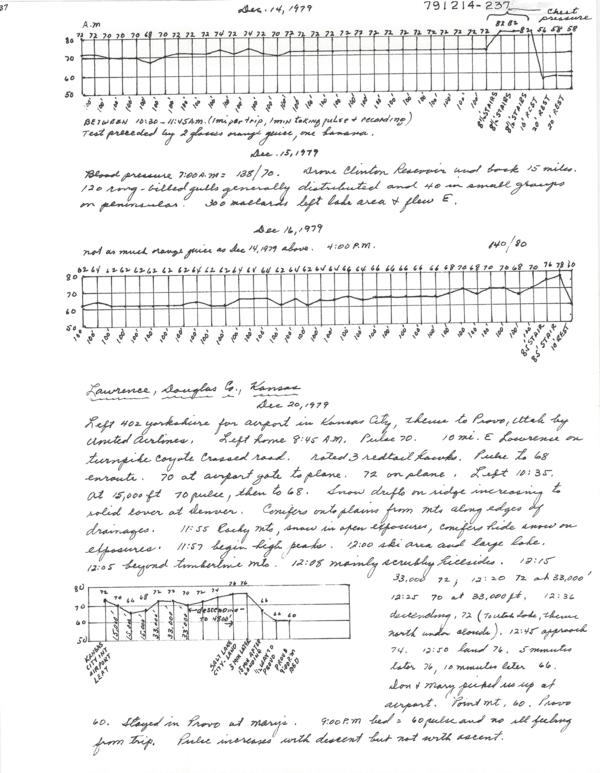 37
Dec. 14, 1979
791214-237
Chest pressure
A.M
82 82
72 72 70 70 70 68 70 72 72 72 74 72 74 72 72 72 72 72 72 72 72 72 72 72 72 72 72 72 72 82 56 58 58
80
70
60
50
8½' STAIRS
8½' STAIRS
8½' STAIRS
10' REST
20' REST
20' REST
BETWEEN 10:30 - 11:45 A.M. (1 mi per trip, 1 min taking pulse & recording)
Test preceded by 2 glasses orange guice, one banana.
Dec. 15, 1979
Blood pressure 7:00 A.M = 138/70. Drove Clinton Resevoir and back 15 miles.
120 ring-billed gulls generally distributed and 40 in small groups
on peninsular. 300 mallards left lake area & flew E.
Dec 16, 1979
not as much orange guice as Dec 14, 1979 above. 4:00 P.M. 140/80
62 64 62 62 62 62 62 64 62 62 64 64 64 62 64 62 64 64 66 64 66 66 66 66 66 66 68 70 68 70 70 68 70 76 78 60
80
70
60
50
85' STAIR
85' STAIR
10' REST
Lawrence, Douglas Co., Kansas
Dec 20, 1979
Left 402 yorkshire for airport in Kansas City, thence to Provo, Utah by
United Airlines. Left home 8:45 A.M. Pulse 70. 10 mi. E Lawrence on
turnpike coyote crossed road. noted 3 redtail hawks. Pulse to 68
enroute. 70 at airport gate to plane. 72 on plane. Left 10:35.
At 15,000 ft 70 pulse, then to 68. Snow drifts on ridge increasing to
solid cover at Denver. Conifers onto plains from mts along edges of
drainages. 11:55 Rocky Mts, snow in open exposures, conifers hide snow on
exposures. 11:57 begin high peaks. 12:00 ski area and large lake.
12:05 beyond timberline mts. 12:08 mainly scrubby hillsides. 12:15
33,000 72, 12:20 72 at 33,000'
12:25 70 at 33,000 ft. 12:36
descending, 72 (to Utah Lake, thence
north under clouds). 12:45 approach
74. 12:50 land 76. 5 minutes
later 76, 10 minutes later 66.
Don & Mary picked us up at
airport. Point Mt, 60. Provo
80
70
60
50
72 70 66 68 72 72 70 72 74 76 76 66 60 60
15,000'
15,000'
33,000'
33,000'
33,000'
←descending→
TO 4500'
KANSAS CITY INT AIRPORT LEFT
SALT LAKE CITY-LAND
5 MIN LATER
15 MIN AFTER LANDING
60. Stayed in Provo at Mary's. 9:00 P.M bed = 60 pulse and no ill feeling
from trip. Pulse increases with descent but not with ascent.